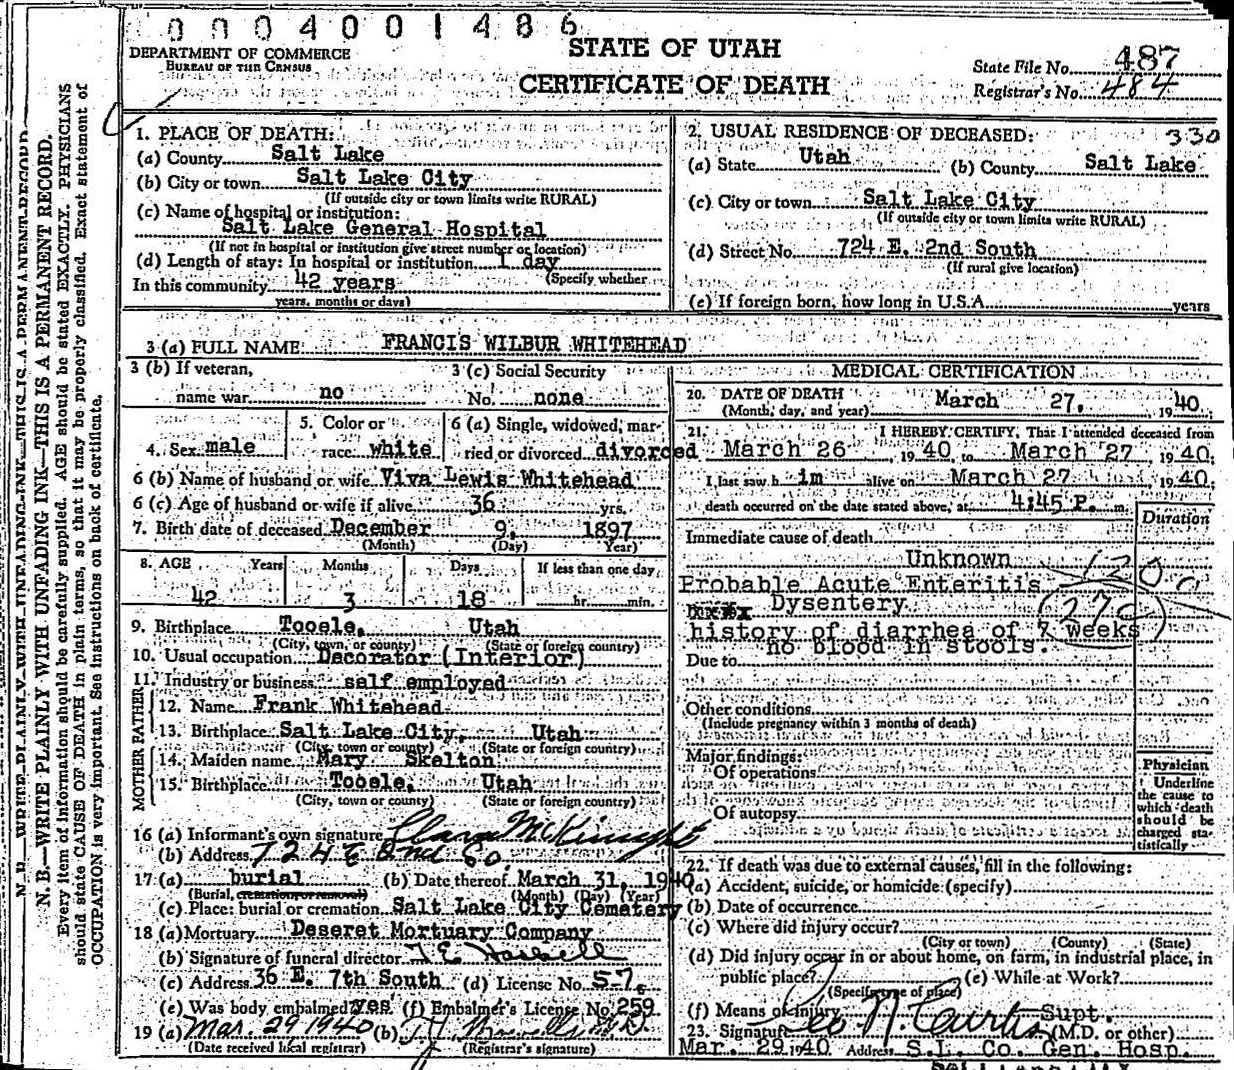 0004001486
DEPARTMENT OF COMMERCE
BUREAU OF THE CENSUS
STATE OF UTAH
CERTIFICATE OF DEATH
State File No. 487
Registrar's No. 484
N. B.—WRITE PLAINLY WITH UNFADING INK—THIS IS A PERMANENT RECORD.
Every item of information should be carefully supplied. AGE should be stated EXACTLY. PHYSICIANS
should state CAUSE OF DEATH in plain terms, so that it may be properly classified. Exact statement of
OCCUPATION is very important. See instructions on back of certificate.
1. PLACE OF DEATH:
(a) County Salt Lake
(b) City or town Salt Lake City
(If outside city or town limits write RURAL)
(c) Name of hospital or institution:
Salt Lake General Hospital
(If not in hospital or institution give street number or location)
(d) Length of stay: In hospital or institution 1 day
(Specify whether
In this community 42 years
years, months or days)
2. USUAL RESIDENCE OF DECEASED: 330
(a) State Utah (b) County Salt Lake
(c) City or town Salt Lake City
(If outside city or town limits write RURAL)
(d) Street No. 724 E. 2nd South
(If rural give location)
(e) If foreign born, how long in U.S.A. years
3 (a) FULL NAME FRANCIS WILBUR WHITEHEAD
3 (b) If veteran,
name war no
3 (c) Social Security
No. none
4. Sex male
5. Color or
race white
6 (a) Single, widowed, mar-
ried or divorced divorced
6 (b) Name of husband or wife Viva Lewis Whitehead
6 (c) Age of husband or wife if alive 36 yrs.
7. Birth date of deceased December 9, 1897
(Month) (Day) (Year)
8. AGE Years Months Days If less than one day
42 3 18 hr. min.
9. Birthplace Tooele, Utah
(City, town, or county) (State or foreign country)
10. Usual occupation Decorator (Interior)
11. Industry or business self employed
FATHER
12. Name Frank Whitehead
13. Birthplace Salt Lake City, Utah
(City, town or county) (State or foreign country)
MOTHER
14. Maiden name Mary Skelton
15. Birthplace Tooele, Utah
(City, town or county) (State or foreign country)
16 (a) Informant's own signature Clara McKinught
(b) Address 724 E 2nd So
17 (a) burial (b) Date thereof March 31, 1940
(Burial, cremation or removal) (Month) (Day) (Year)
(c) Place: burial or cremation Salt Lake City Cemetery
18 (a) Mortuary Deseret Mortuary Company
(b) Signature of funeral director
(c) Address 36 E. 7th South (d) License No. 57
(e) Was body embalmed? yes (f) Embalmer's License No. 259
19 (a) Mar. 29 1940 (b) M.D.
(Date received local registrar) (Registrar's signature)
MEDICAL CERTIFICATION
20. DATE OF DEATH March 27, 1940
(Month, day, and year)
21. I HEREBY CERTIFY, That I attended deceased from
March 26 1940 to March 27, 1940;
I last saw h im alive on March 27 1940;
death occurred on the date stated above, at 4:45 P. m.
Duration
Immediate cause of death
Unknown
120 a
Probable Acute Enteritis
Dysentery
(27c)
history of diarrhea of 7 weeks
no blood in stools.
Due to
Other conditions
(Include pregnancy within 3 months of death)
Major findings:
Of operations
Of autopsy
Physician
Underline
the cause to
which death
should be
charged sta-
tistically
22. If death was due to external causes, fill in the following:
(a) Accident, suicide, or homicide (specify)
(b) Date of occurrence
(c) Where did injury occur?
(City or town) (County) (State)
(d) Did injury occur in or about home, on farm, in industrial place, in
public place? (e) While at Work?
(Specify type of place)
(f) Means of injury
23. Signature Leo N. Curtis Supt.
(M.D. or other)
Mar. 29 1940 Address S.L. Co. Gen. Hosp.